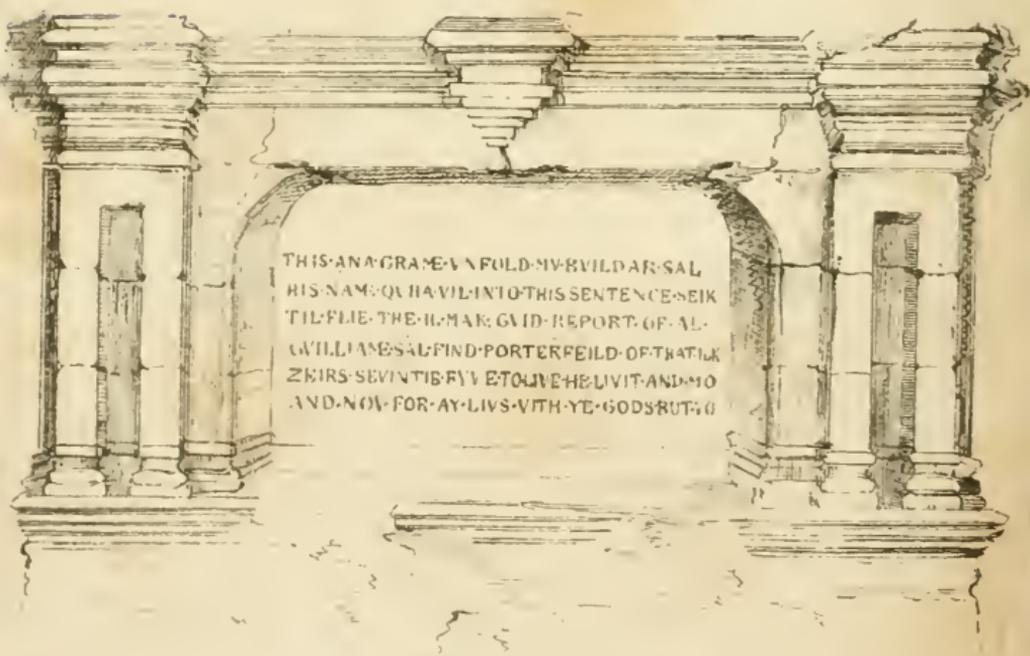 THIS·ANAGRAME·VNFOLD·MY·BVILDAR·SAL
HIS·NAM·QVHA·VIL·INTO·THIS SENTENCE·SEIK
TIL·FLIE·THE·IL·MAK·GVID·REPORT·OF·AL·
GVILLIAME·SAL·FIND·PORTERFEILD·OF·THAT·ILK
ZEIRS·SEVINTIE·FYVE·TO·LIVE·HE·LIVIT·AND·MO
AND·NOV·FOR·AY·LIVS·VITH·YE·GODS·BUT